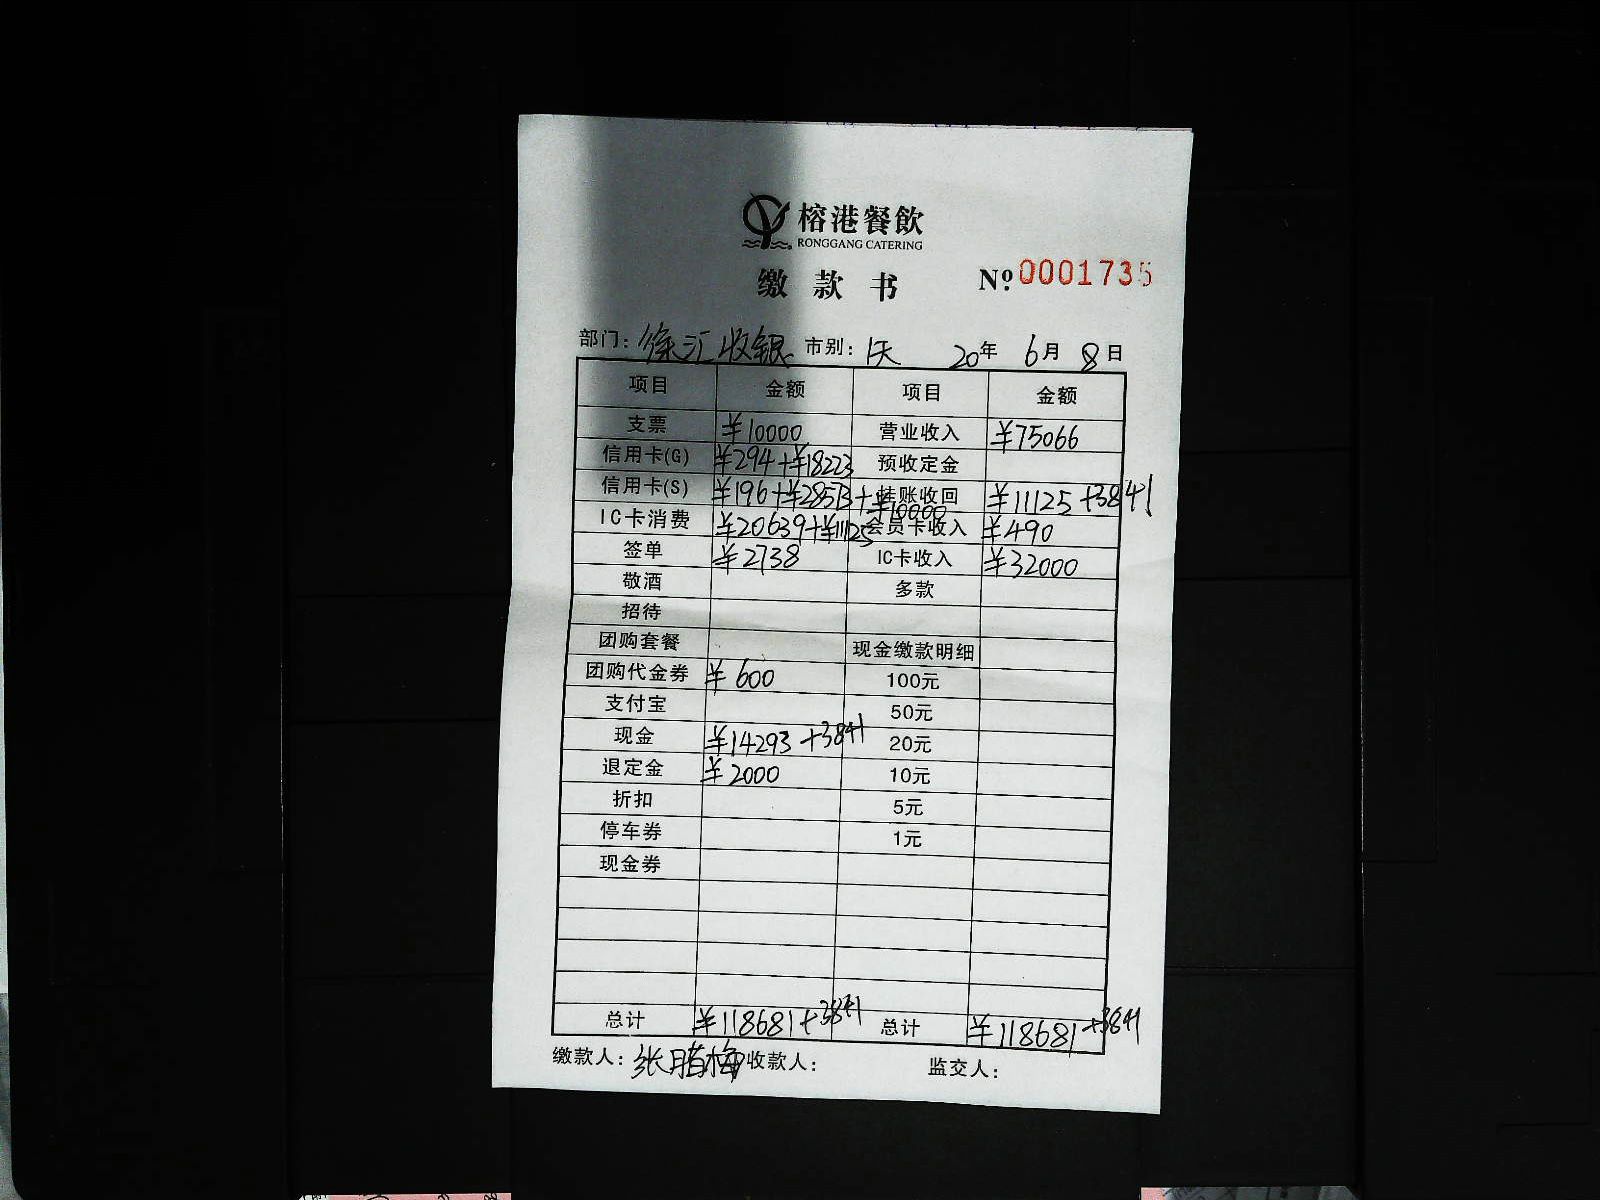 榕港餐飲
RONGGANG CATERING
缴款书 No. 0001735
部门: 徐汇收银 市别: 1天 20年 6月 8日
项目 金额 项目 金额
支票 ¥10000 营业收入 ¥75066
信用卡(G) ¥294+¥18223 预收定金
信用卡(S) ¥196+¥28573+¥10000 挂账收回 ¥11125+3841
IC卡消费 ¥20639+¥11125 会员卡收入 ¥490
签单 ¥2738 IC卡收入 ¥32000
敬酒 多款
招待
团购套餐 现金缴款明细
团购代金券 ¥600 100元
支付宝 50元
现金 ¥14293+3841 20元
退定金 ¥2000 10元
折扣 5元
停车券 1元
现金券
总计 ¥118681+3841 总计 ¥118681+3841
缴款人: 张腊梅 收款人: 监交人: